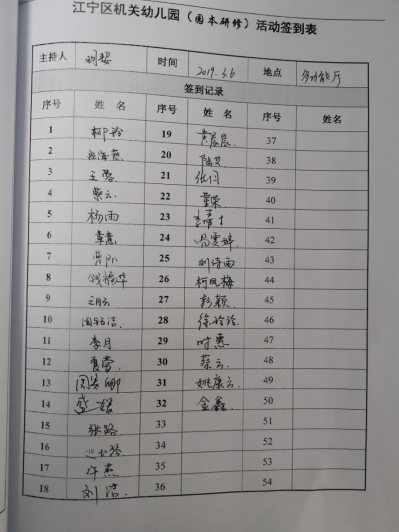 江宁区机关幼儿园（园本研修）活动签到表
主持人 时间 2019.3.6 地点 多功能厅
签到记录
序号 姓名 序号 姓名 序号 姓名
1 柳玲 19 黄晨晨 37
2 20 陆艾 38
3 王蓉 21 张闩 39
4 蔡云 22 童荣 40
5 杨雨 23 41
6 章慧 24 冯雯婷 42
7 曹阳 25 刘诗雨 43
8 钱福华 26 柯凤梅 44
9 27 彭颖 45
10 周钰洁 28 徐玲玲 46
11 李月 29 时惠 47
12 袁莹 30 蔡云 48
13 31 姚康云 49
14 盛媛 32 金鑫 50
15 张路 33 51
16 34 52
17 许杰 35 53
18 刘洁 36 54